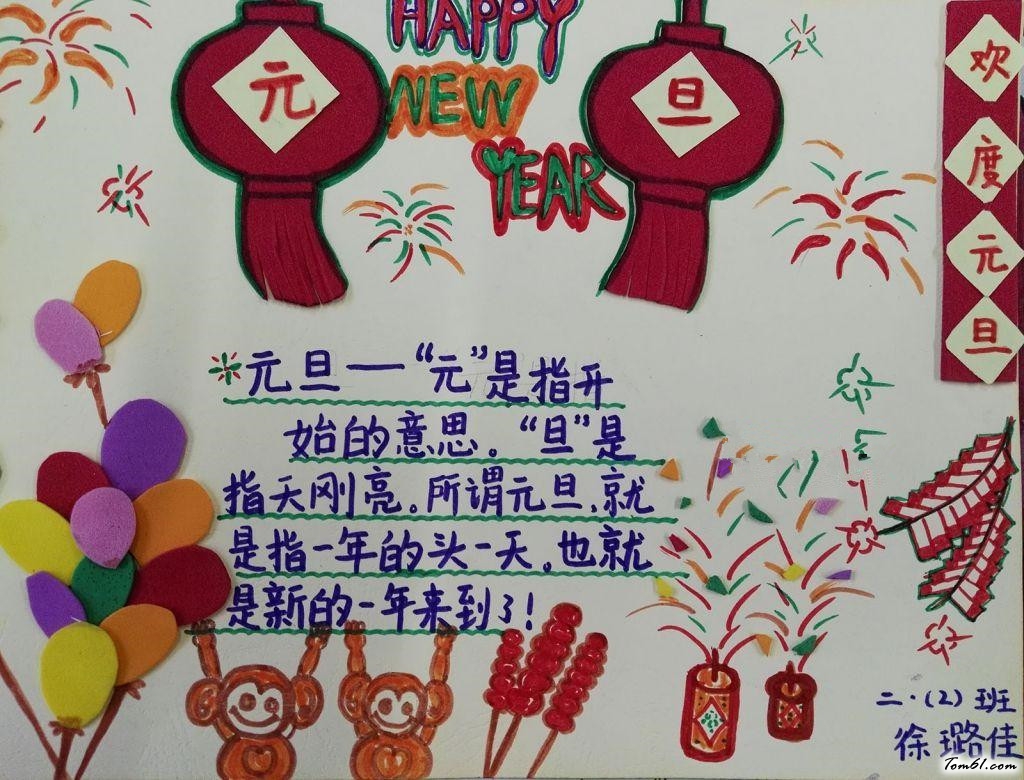 HAPPY
NEW
YEAR
元 旦
欢
度
元
旦
元旦——“元”是指开
始的意思。“旦”是
指天刚亮。所谓元旦,就
是指一年的头一天。也就
是新的一年来到了!
二·(2)班
徐璐佳
Tom61.com